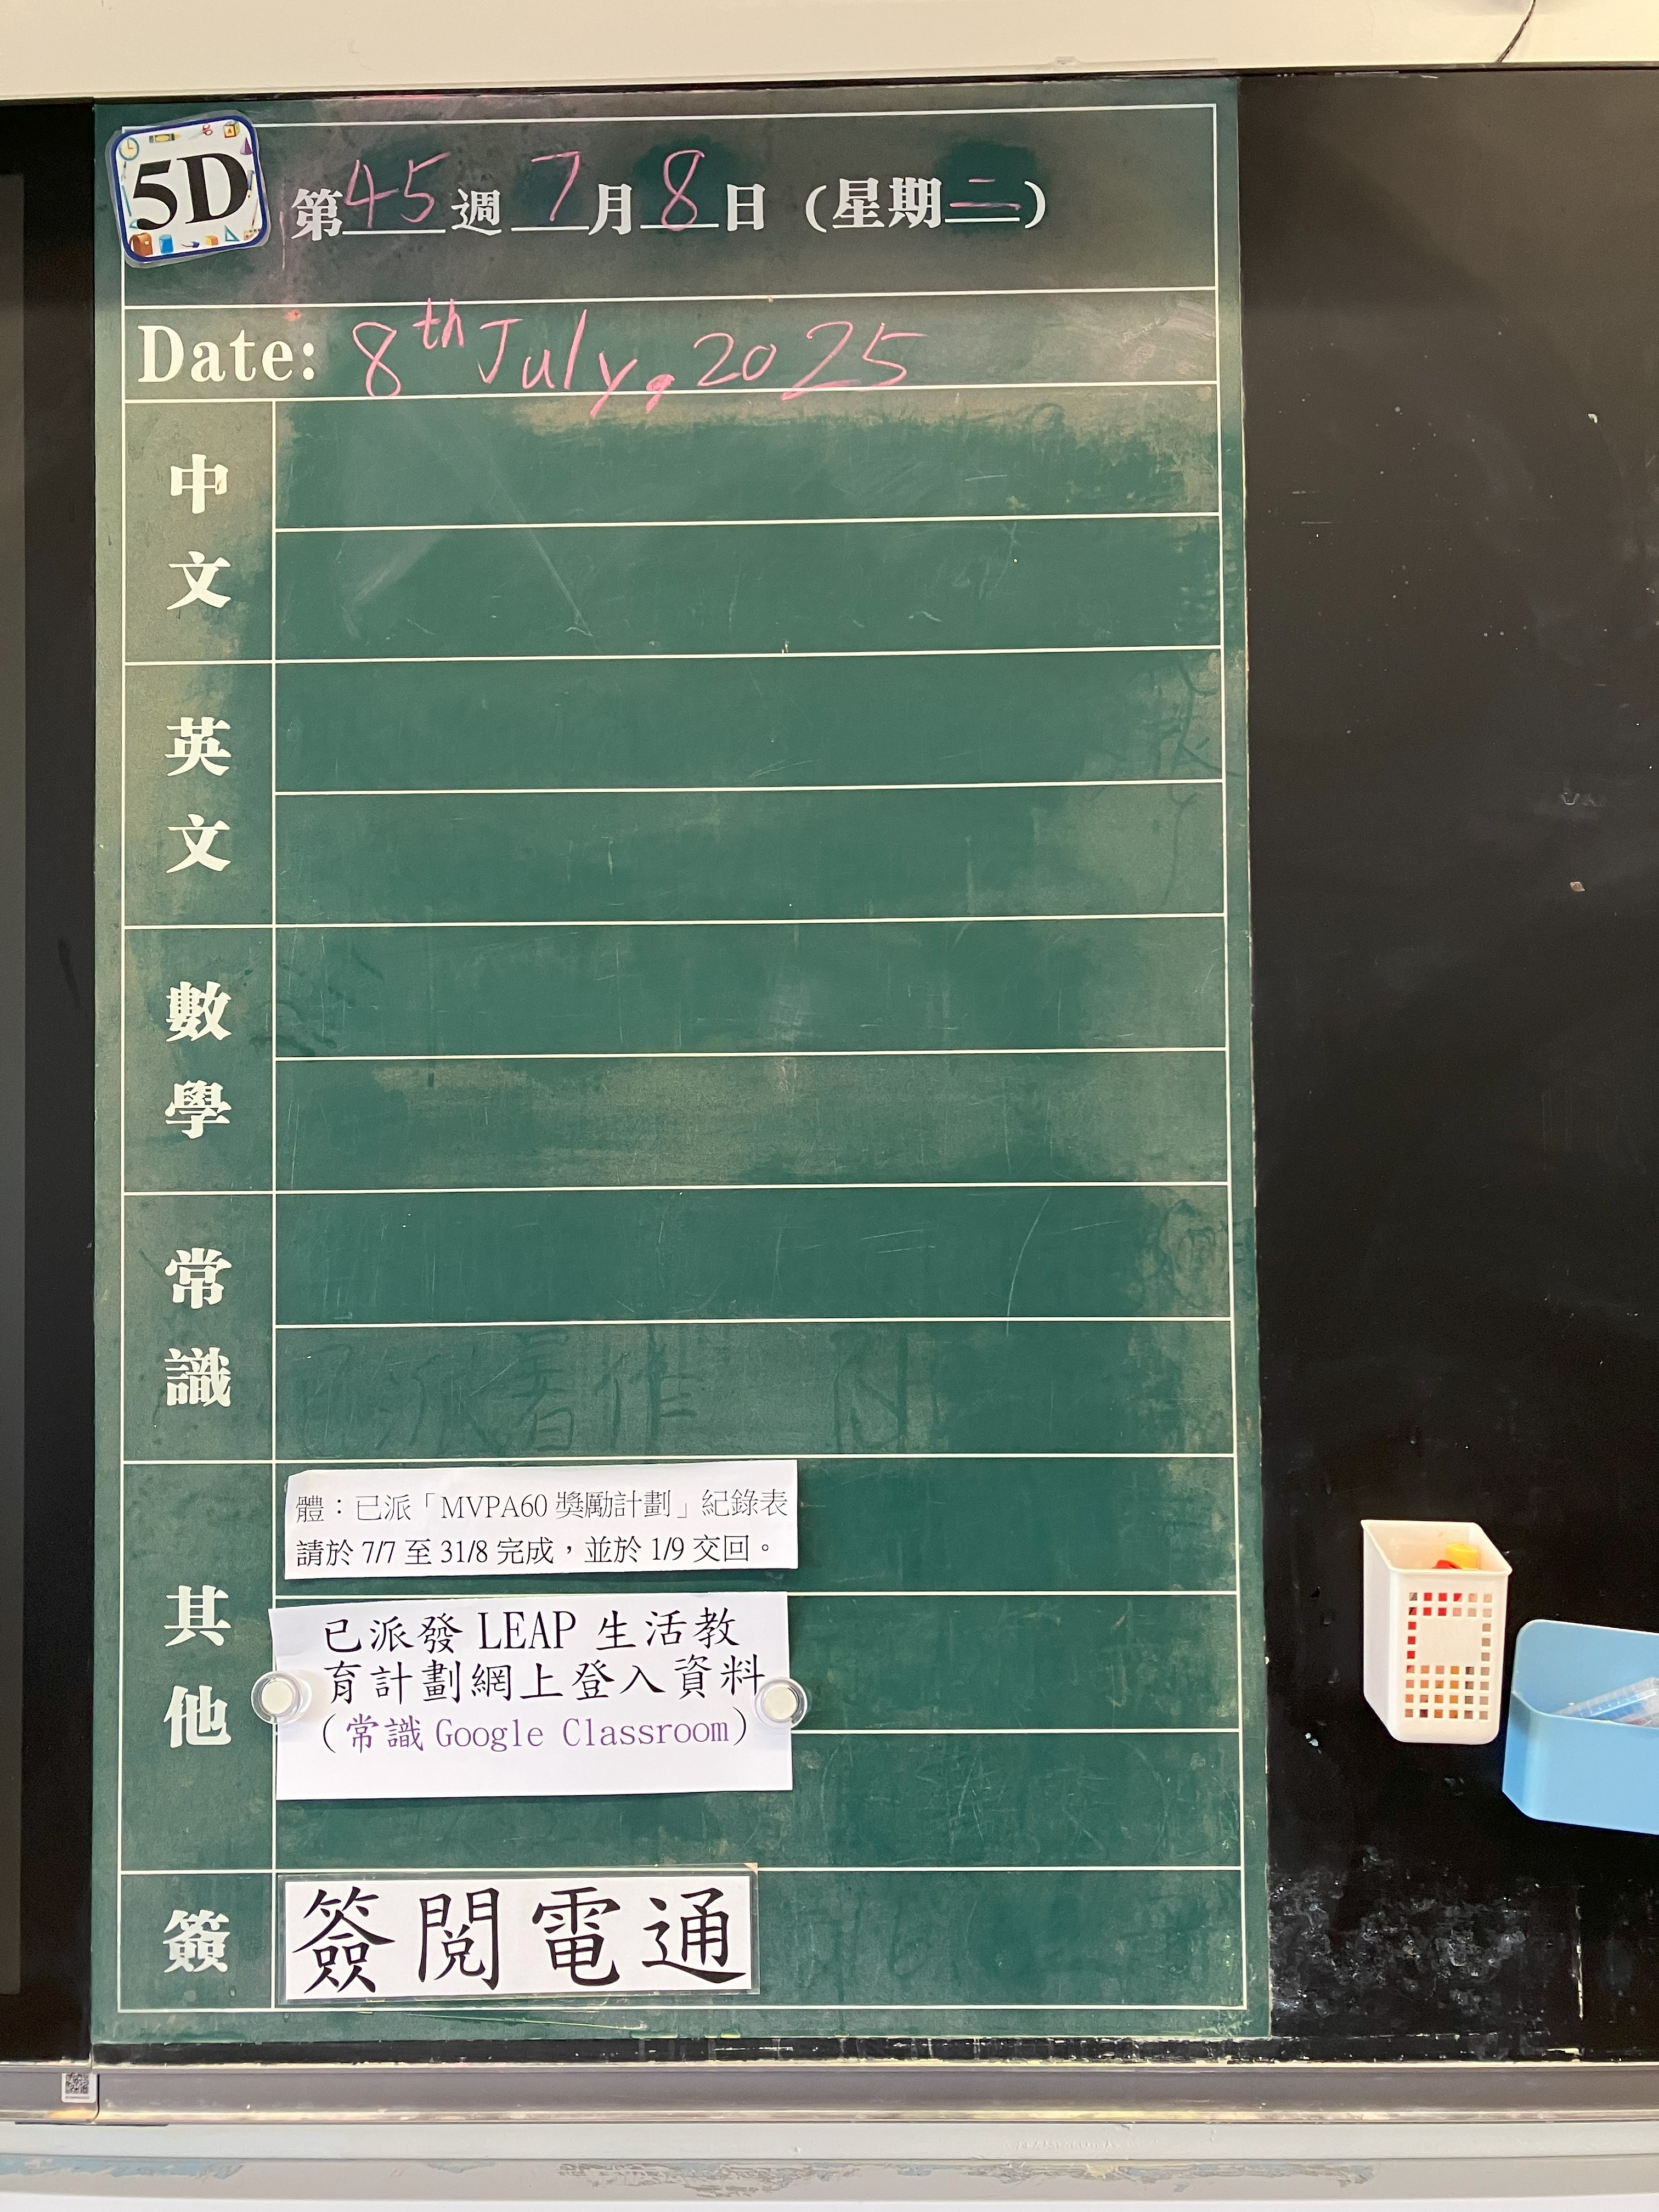 5D
第45週 7月8日（星期二）
Date: 8th July, 2025
中文
英文
數學
常識
已派 作
其他
體：已派「MVPA60 獎勵計劃」紀錄表
請於 7/7 至 31/8 完成，並於 1/9 交回。
已派發 LEAP 生活教
育計劃網上登入資料
（常識 Google Classroom）
簽
簽閱電通